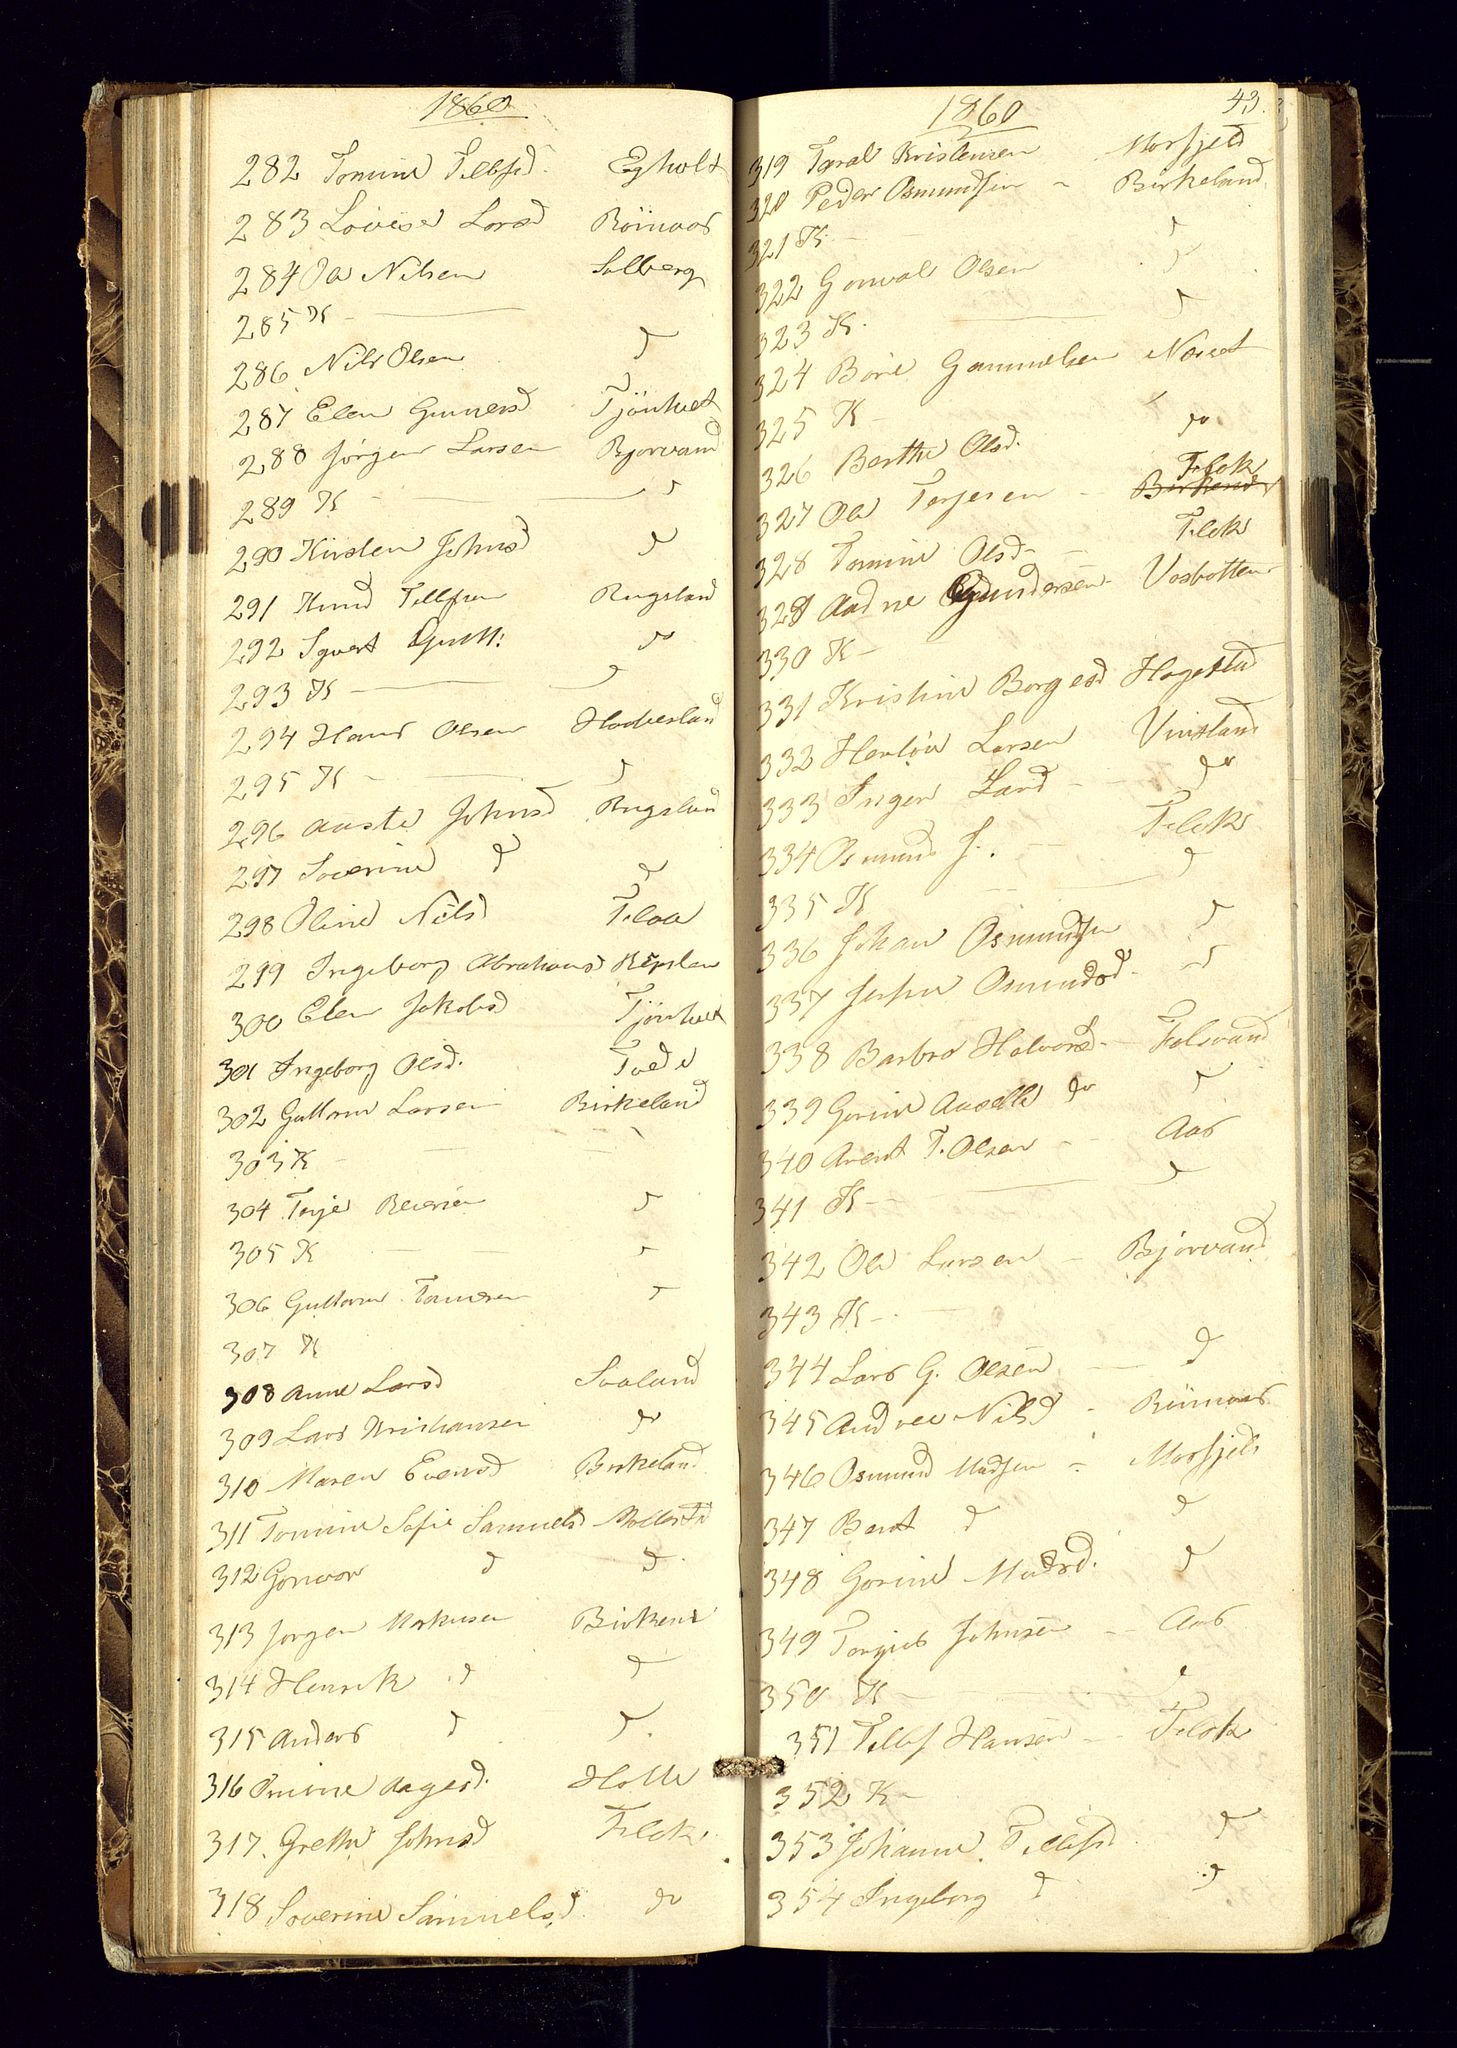 1860
282 Tomine Tellefsd. Egholt
283 Lovise Larsd Röinaas
284 Ole Nilsen Solberg
285 K -
286 Nils Olsen d
287 Elen Gunersd Tjönhuet
288 Jørgen Larsen Bjorvand
289 K - d
290 Kirsten Johnsd d
291 Knud Tellefsen Rugsland
292 Syvert Gutt: do
293 K d
294 Hans Olsen Hovlesland
295 K - d
296 Aaste Johnsd Rugsland
297 Soverine d d
298 Oline Nilsd Teloe
299 Ingeborg Abrahamsd Kepslan
300 Elen Jakobsd Tjönhuet
301 Ingeborg Olsd. Tvede
302 Guttorm Larsen Birkeland
303 K -
304 Terje Reiersen d
305 K d
306 Guttorm Tomesen d
307 K
308 Anne Larsd Svaland
309 Lars Kristiansen do
310 Maren Evensd Birkeland
311 Tomine Sofie Samuelsd Mollestd
312 Gonvor d d
313 Jorgen Markusen Birkene
314 Henrik d d
315 Anders d d.
316 Omine Aagesd. Holte
317. Grethe Johnsd Flek
318 Soverine Samuelsd. do
1860 43.
319 Taral Kristensen Morfjeld
320 Peder Osmundsen - Birkeland
321 K - d
322 Gonval Olsen d
323 K. d
324 Börie Gammelsen Næset
325 K -
326 Berthe Olsd. do
327 Ole Terjesen - Flek
328 Tomine Olsd - Flek
329 Aadne Gundersen - Vasbotten
330 K -
331 Kristine Borgesd Hagestad
332 Herlöv Larsen Vinsland
333 Inger Larsd - do
334 Osmund J. Flek
335 K d
336 Johan Osmundsen d
337 Osmundsd. d
338 Barbro Halvorsd - Tolsvand
339 Gorine Aasille do d
340 Arent T. Olsen - Aas
341 K - d
342 Ole Larsen - Bjorvand
343 K -
344 Lars G. Olsen d
345 Andrea Nilsd - Röinaas
346 Osmund Madsen - Morfjeld
347 Berot d d
348 Gorine Madsd. d
349 Torjus Johnsen - Aas
350 K - d
351 Tellef Hansen - Flek
352 K -
353 Johanne Tellefsd d
354 Ingeborg d d